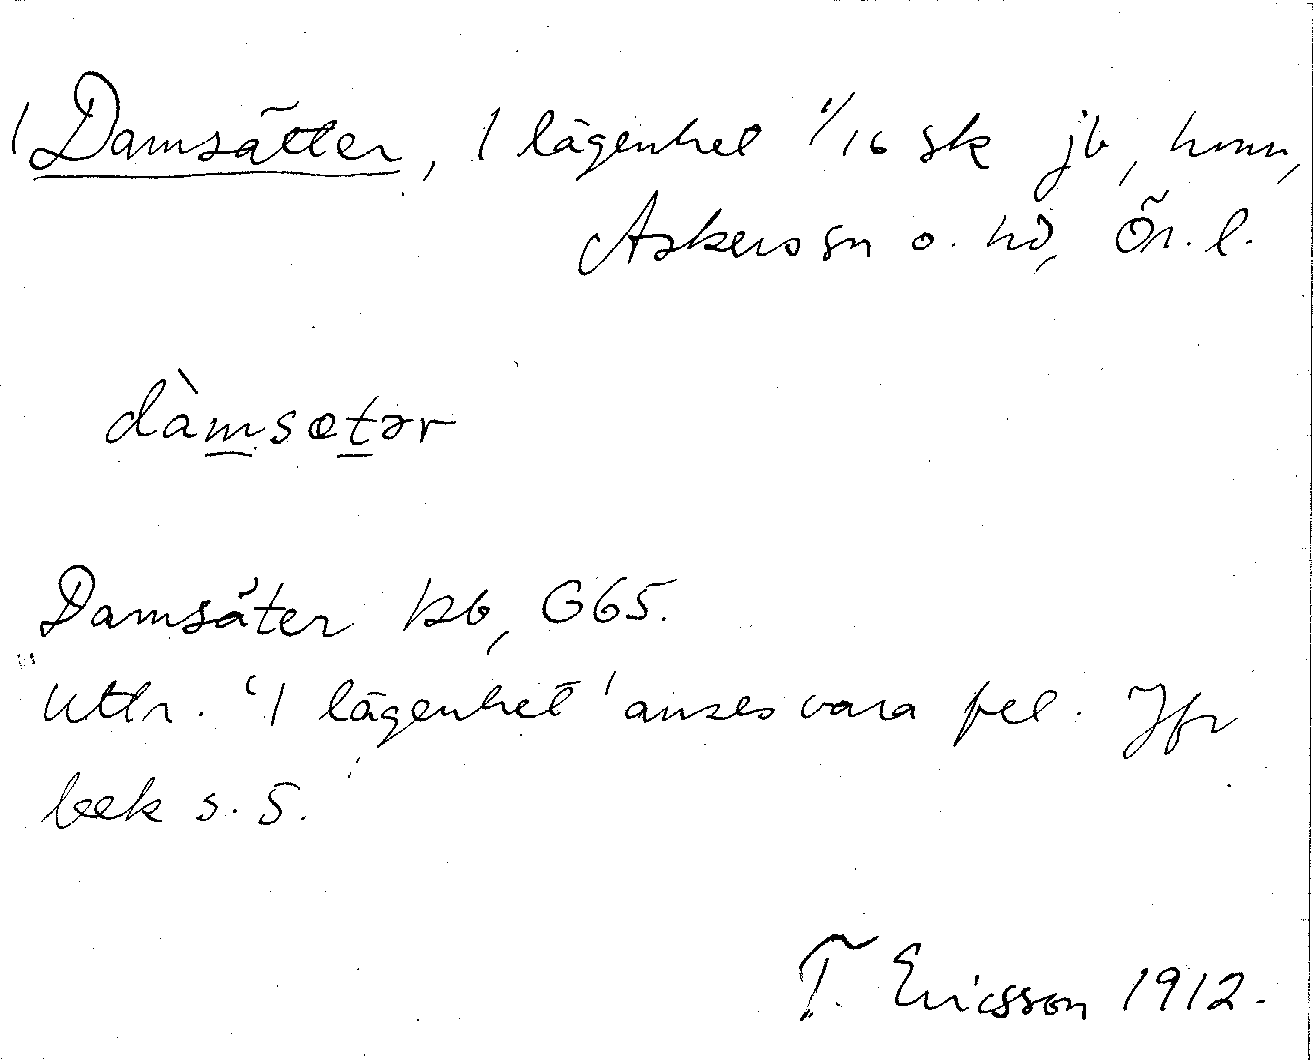 1 Damsätter, 1 lägenhet 1/16 sk jb, hmn,
Askers sn o. hd, Ör. l.
dàmsætər
Damsäter kb, G65.
Uttr. '1 lägenhet' anses vara fel. Jfr
bek s. 5.
T. Ericsson 1912.